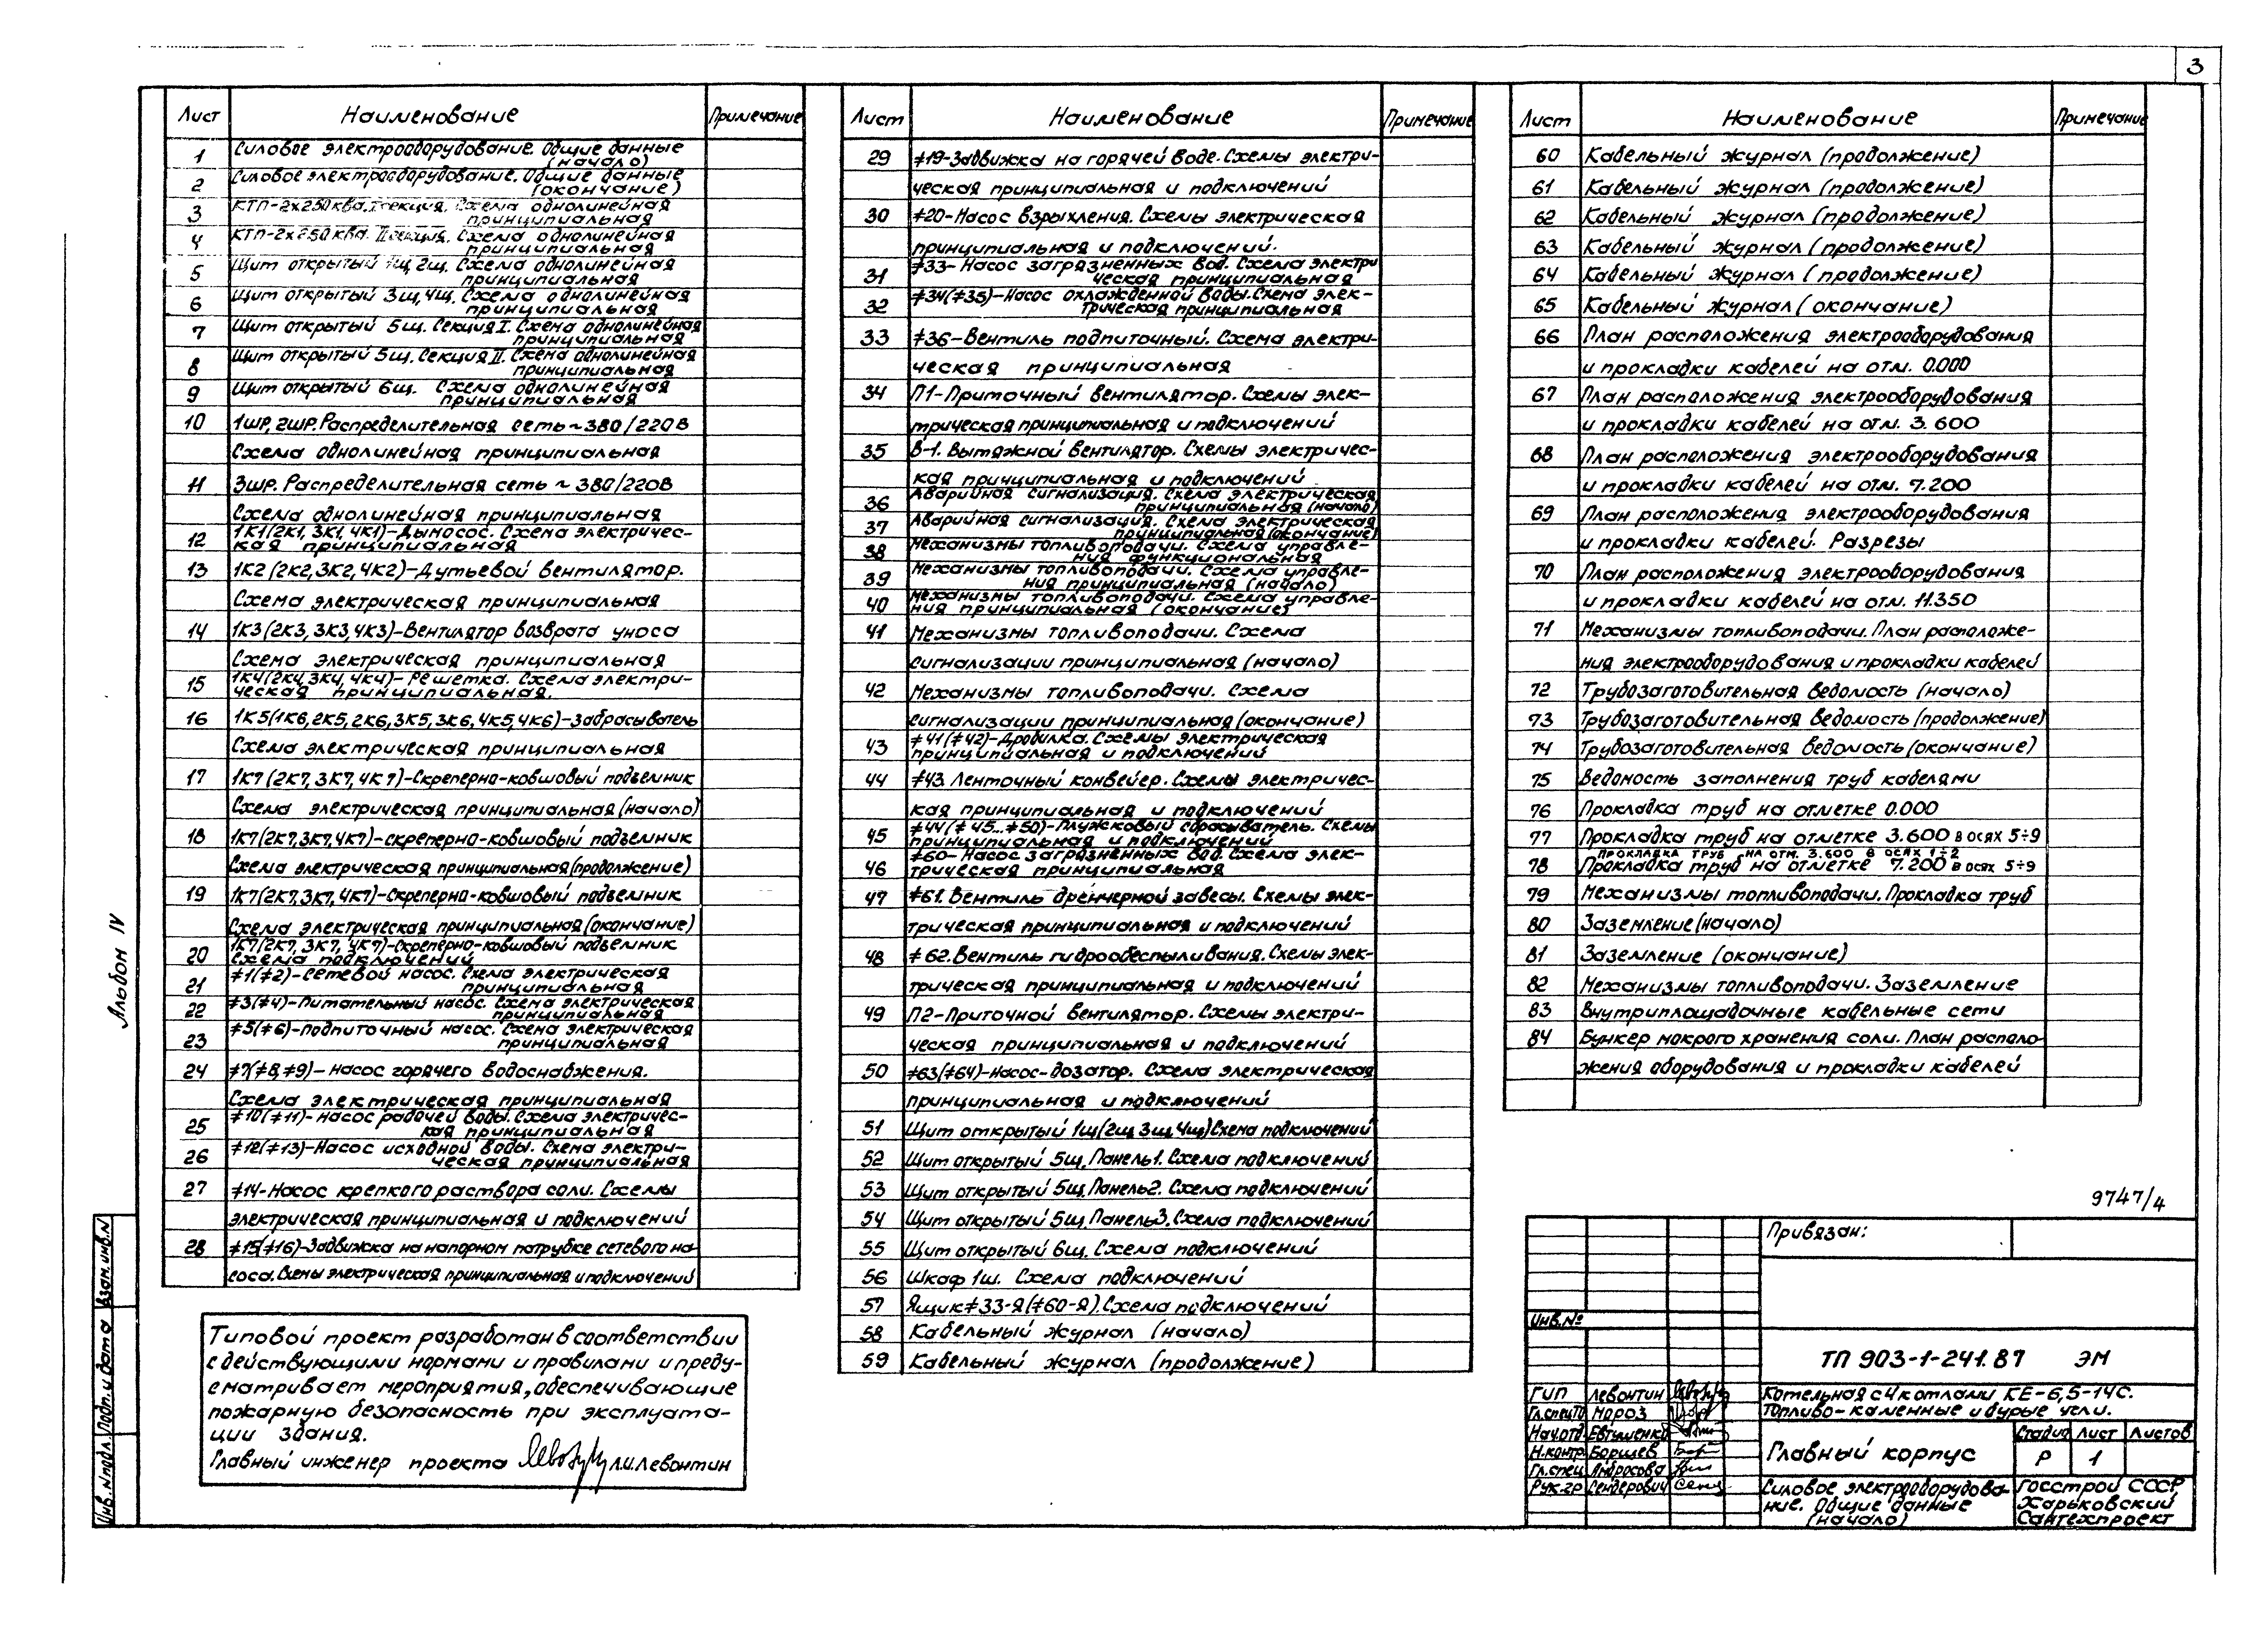 3
Лист Наименование Примечание
1 Силовое электрооборудование. Общие данные
(начало)
2 Силовое электрооборудование. Общие данные
(окончание)
3 КТП-2х250 ква. I секция. Схема однолинейная
принципиальная
4 КТП-2х250 ква. II секция. Схема однолинейная
принципиальная
5 Щит открытый 1щ, 2щ. Схема однолинейная
принципиальная
6 Щит открытый 3щ, 4щ. Схема однолинейная
принципиальная
7 Щит открытый 5щ. Секция I. Схема однолинейная
принципиальная
8 Щит открытый 5щ. Секция II. Схема однолинейная
принципиальная
9 Щит открытый 6щ. Схема однолинейная
принципиальная
10 1шр, 2шр. Распределительная сеть ~380/220В
Схема однолинейная принципиальная
11 3шр. Распределительная сеть ~ 380/220В
Схема однолинейная принципиальная
12 1К1(2К1, 3К1, 4К1)-Дымосос. Схема электричес-
кая принципиальная
13 1К2 (2К2, 3К2, 4К2)-Дутьевой вентилятор.
Схема электрическая принципиальная
14 1К3 (2К3, 3К3, 4К3)-Вентилятор возврата уноса
Схема электрическая принципиальная
15 1К4(2К4, 3К4, 4К4)-Решетка. Схема электри-
ческая принципиальная.
16 1К5(1К6, 2К5, 2К6, 3К5, 3К6, 4К5, 4К6)-Забрасыватель
Схема электрическая принципиальная
17 1К7 (2К7, 3К7, 4К7)-Скреперно-ковшовый подъемник
Схема электрическая принципиальная (начало)
18 1К7(2К7, 3К7, 4К7)-скреперно-ковшовый подъемник
Схема электрическая принципиальная (продолжение)
19 1К7(2К7, 3К7, 4К7)-Скреперно-ковшовый подъемник
Схема электрическая принципиальная (окончание)
20 1К7(2К7, 3К7, 4К7)-Скреперно-ковшовый подъемник
Схема подключений
21 #1(#2)-Сетевой насос. Схема электрическая
принципиальная
22 #3(#4)-Питательный насос. Схема электрическая
принципиальная
23 #5(#6)-Подпиточный насос. Схема электрическая
принципиальная
24 #7(#8, #9)-Насос горячего водоснабжения.
Схема электрическая принципиальная
25 #10(#11)-Насос рабочей воды. Схема электричес-
кая принципиальная
26 #12(#13)-Насос исходной воды. Схема электри-
ческая принципиальная
27 #14-Насос крепкого раствора соли. Схемы
электрическая принципиальная и подключений
28 #15(#16)-Задвижка на напорном патрубке сетевого на-
соса. Схемы электрическая принципиальная и подключений
Лист Наименование Примечание
29 #19-Задвижка на горячей воде. Схемы электри-
ческая принципиальная и подключений
30 #20-Насос взрыхления. Схемы электрическая
принципиальная и подключений.
31 #33-Насос загрязненных вод. Схема электри
ческая принципиальная
32 #34(#35)-Насос охлажденной воды. Схема элек-
трическая принципиальная
33 #36-Вентиль подпиточный. Схема электри-
ческая принципиальная
34 П1-Приточный вентилятор. Схемы элек-
трическая принципиальная и подключений
35 В-1. Вытяжной вентилятор. Схемы электричес-
кая принципиальная и подключений
36 Аварийная сигнализация. Схема электрическая
принципиальная (начало)
37 Аварийная сигнализация. Схема электрическая
принципиальная (окончание)
38 Механизмы топливоподачи. Схема управле-
ния функциональная
39 Механизмы топливоподачи. Схема управле-
ния принципиальная (начало)
40 Механизмы топливоподачи. Схема управле-
ния принципиальная (окончание)
41 Механизмы топливоподачи. Схема
сигнализации принципиальная (начало)
42 Механизмы топливоподачи. Схема
сигнализации принципиальная (окончание)
43 #41(#42)-Дробилка. Схемы электрическая
принципиальная и подключений
44 #43. Ленточный конвейер. Схемы электричес-
кая принципиальная и подключений
45 #44(#45...#50)-Плужковый сбрасыватель. Схемы
принципиальная и подключений
46 #60-Насос загрязненных вод. Схема элек-
трическая принципиальная
47 #61. Вентиль дренчерной завесы. Схемы элек-
трическая принципиальная и подключений
48 #62. Вентиль гидрообеспыливания. Схемы элек-
трическая принципиальная и подключений
49 П2-Приточной вентилятор. Схемы электри-
ческая принципиальная и подключений
50 #63(#64)-Насос-дозатор. Схема электрическая
принципиальная и подключений
51 Щит открытый 1щ(2щ, 3щ, 4щ) Схема подключений
52 Щит открытый 5щ. Панель 1. Схема подключений
53 Щит открытый 5щ. Панель 2. Схема подключений
54 Щит открытый 5щ. Панель 3. Схема подключений
55 Щит открытый 6щ. Схема подключений
56 Шкаф 1ш. Схема подключений
57 Ящик #33-Я(#60-Я). Схема подключений
58 Кабельный журнал (начало)
59 Кабельный журнал (продолжение)
Лист Наименование Примечание
60 Кабельный журнал (продолжение)
61 Кабельный журнал (продолжение)
62 Кабельный журнал (продолжение)
63 Кабельный журнал (продолжение)
64 Кабельный журнал (продолжение)
65 Кабельный журнал (окончание)
66 План расположения электрооборудования
и прокладки кабелей на отм. 0.000
67 План расположения электрооборудования
и прокладки кабелей на отм. 3.600
68 План расположения электрооборудования
и прокладки кабелей на отм. 7.200
69 План расположения электрооборудования
и прокладки кабелей. Разрезы
70 План расположения электрооборудования
и прокладки кабелей на отм. 11.350
71 Механизмы топливоподачи. План расположе-
ния электрооборудования и прокладки кабелей
72 Трубозаготовительная ведомость (начало)
73 Трубозаготовительная ведомость (продолжение)
74 Трубозаготовительная ведомость (окончание)
75 Ведомость заполнения труб кабелями
76 Прокладка труб на отметке 0.000
77 Прокладка труб на отметке 3.600 в осях 5÷9
Прокладка труб на отм. 3.600 в осях 1÷2
78 Прокладка труб на отметке 7.200 в осях 5÷9
79 Механизмы топливоподачи. Прокладка труб
80 Заземление (начало)
81 Заземление (окончание)
82 Механизмы топливоподачи. Заземление
83 Внутриплощадочные кабельные сети
84 Бункер мокрого хранения соли. План располо-
жения оборудования и прокладки кабелей
Альбом IV
Инв. № подл. Подп. и дата Взам. инв. №
Типовой проект разработан в соответствии
с действующими нормами и правилами и преду-
сматривает мероприятия, обеспечивающие
пожарную безопасность при эксплуата-
ции здания.
Главный инженер проекта Л.И. Левонтин
9747/4
Привязан:
Инв. №
ТП 903-1-241.87 ЭМ
ГИП Левонтин
Гл.спец ТО Мороз
Нач.отд. Евтушенко
Н.контр. Борщев
Гл.спец Амбросова
Рук.гр Сендерович
Котельная с 4 котлами КЕ-6,5-14С.
Топливо-каменные и бурые угли.
Главный корпус
Стадия Лист Листов
Р 1
Силовое электрооборудова-
ние. Общие данные
(начало)
Госстрой СССР
Харьковский
Сантехпроект